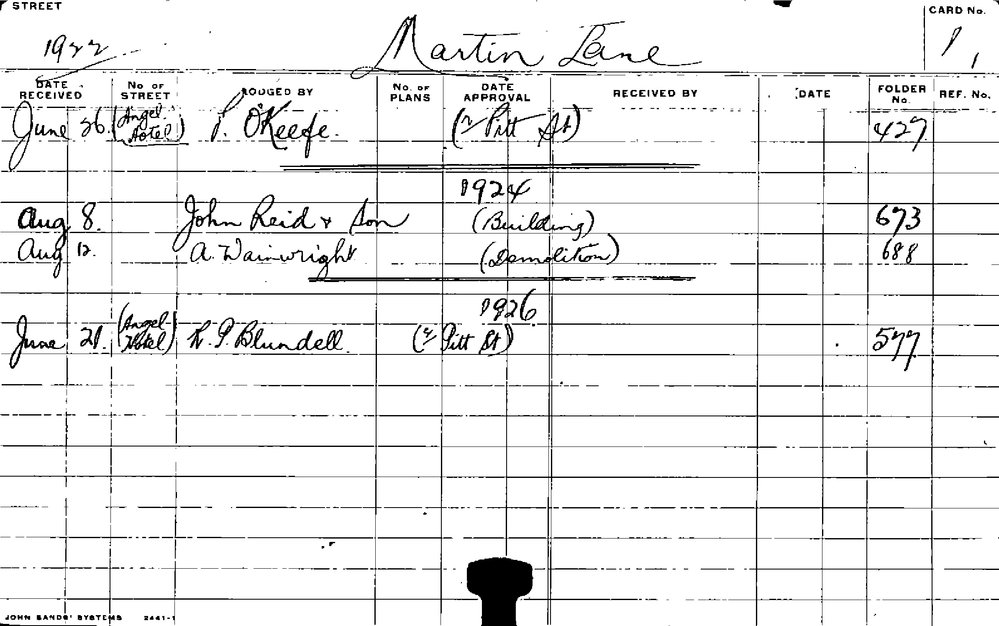 STREET CARD No.
1922 Martin Lane 1
DATE RECEIVED No OF STREET LODGED BY No. OF PLANS DATE APPROVAL RECEIVED BY DATE FOLDER No. REF. No.
June 26. (Angel Hotel) P. O'Keefe. (& Pitt St) 427
1924
Aug 8. John Reid & Son (Building) 673
Aug 12. A. Wainwright (Demolition) 688
1926
June 21. (Angel Hotel) R. P. Blundell. (& Pitt St) 577
JOHN SANDS' SYSTEMS 2441-1